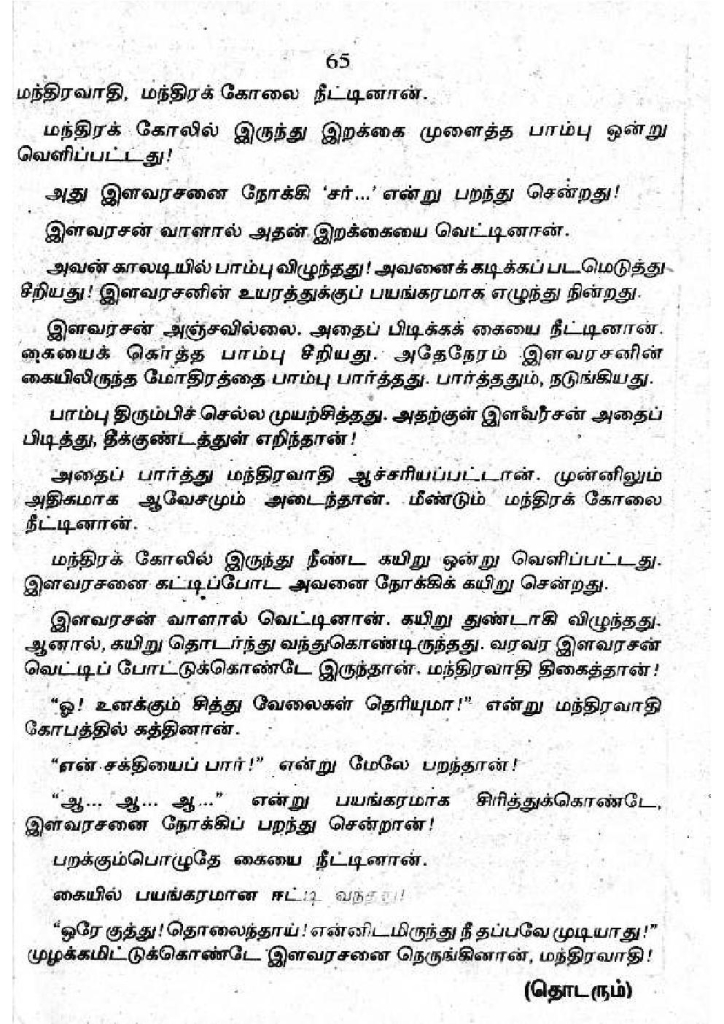 65
மந்திரவாதி, மந்திரக் கோலை நீட்டினான்.
மந்திரக் கோலில் இருந்து இறக்கை முளைத்த பாம்பு ஒன்று
வெளிப்பட்டது!
அது இளவரசனை நோக்கி ‘சர்...’ என்று பறந்து சென்றது!
இளவரசன் வாளால் அதன் இறக்கையை வெட்டினான்.
அவன் காலடியில் பாம்பு விழுந்தது! அவனைக் கடிக்கப் படமெடுத்து
சீறியது! இளவரசனின் உயரத்துக்குப் பயங்கரமாக எழுந்து நின்றது.
இளவரசன் அஞ்சவில்லை. அதைப் பிடிக்கக் கையை நீட்டினான்.
கையைக் கொத்த பாம்பு சீறியது. அதேநேரம் இளவரசனின்
கையிலிருந்த மோதிரத்தை பாம்பு பார்த்தது. பார்த்ததும், நடுங்கியது.
பாம்பு திரும்பிச் செல்ல முயற்சித்தது. அதற்குள் இளவரசன் அதைப்
பிடித்து, தீக்குண்டத்துள் எறிந்தான்!
அதைப் பார்த்து மந்திரவாதி ஆச்சரியப்பட்டான். முன்னிலும்
அதிகமாக ஆவேசமும் அடைந்தான். மீண்டும் மந்திரக் கோலை
நீட்டினான்.
மந்திரக் கோலில் இருந்து நீண்ட கயிறு ஒன்று வெளிப்பட்டது.
இளவரசனை கட்டிப்போட அவனை நோக்கிக் கயிறு சென்றது.
இளவரசன் வாளால் வெட்டினான். கயிறு துண்டாகி விழுந்தது.
ஆனால், கயிறு தொடர்ந்து வந்துகொண்டிருந்தது. வரவர இளவரசன்
வெட்டிப் போட்டுக்கொண்டே இருந்தான். மந்திரவாதி திகைத்தான்!
“ஓ! உனக்கும் சித்து வேலைகள் தெரியுமா!” என்று மந்திரவாதி
கோபத்தில் கத்தினான்.
“என் சக்தியைப் பார்!” என்று மேலே பறந்தான்!
“ஆ... ஆ... ஆ...” என்று பயங்கரமாக சிரித்துக்கொண்டே,
இளவரசனை நோக்கிப் பறந்து சென்றான்!
பறக்கும்பொழுதே கையை நீட்டினான்.
கையில் பயங்கரமான ஈட்டி வந்தது!
“ஒரே குத்து! தொலைந்தாய்! என்னிடமிருந்து நீ தப்பவே முடியாது!”
முழக்கமிட்டுக்கொண்டே இளவரசனை நெருங்கினான், மந்திரவாதி!
(தொடரும்)